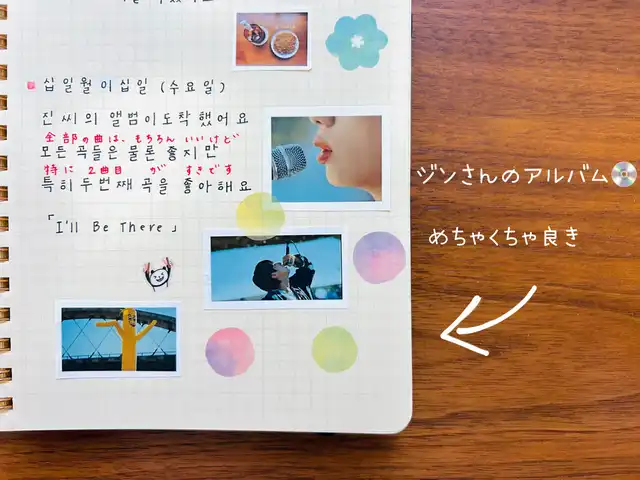 십일월이십일 (수요일)
진씨의 앨범이도착했어요
全部の曲は、もちろん いいけど
모든곡들은 물론 좋지만
特に 2曲目 が すきです
특히 두번째 곡을 좋아해요
「I'll Be There」
ジンさんのアルバム
めちゃくちゃ良き